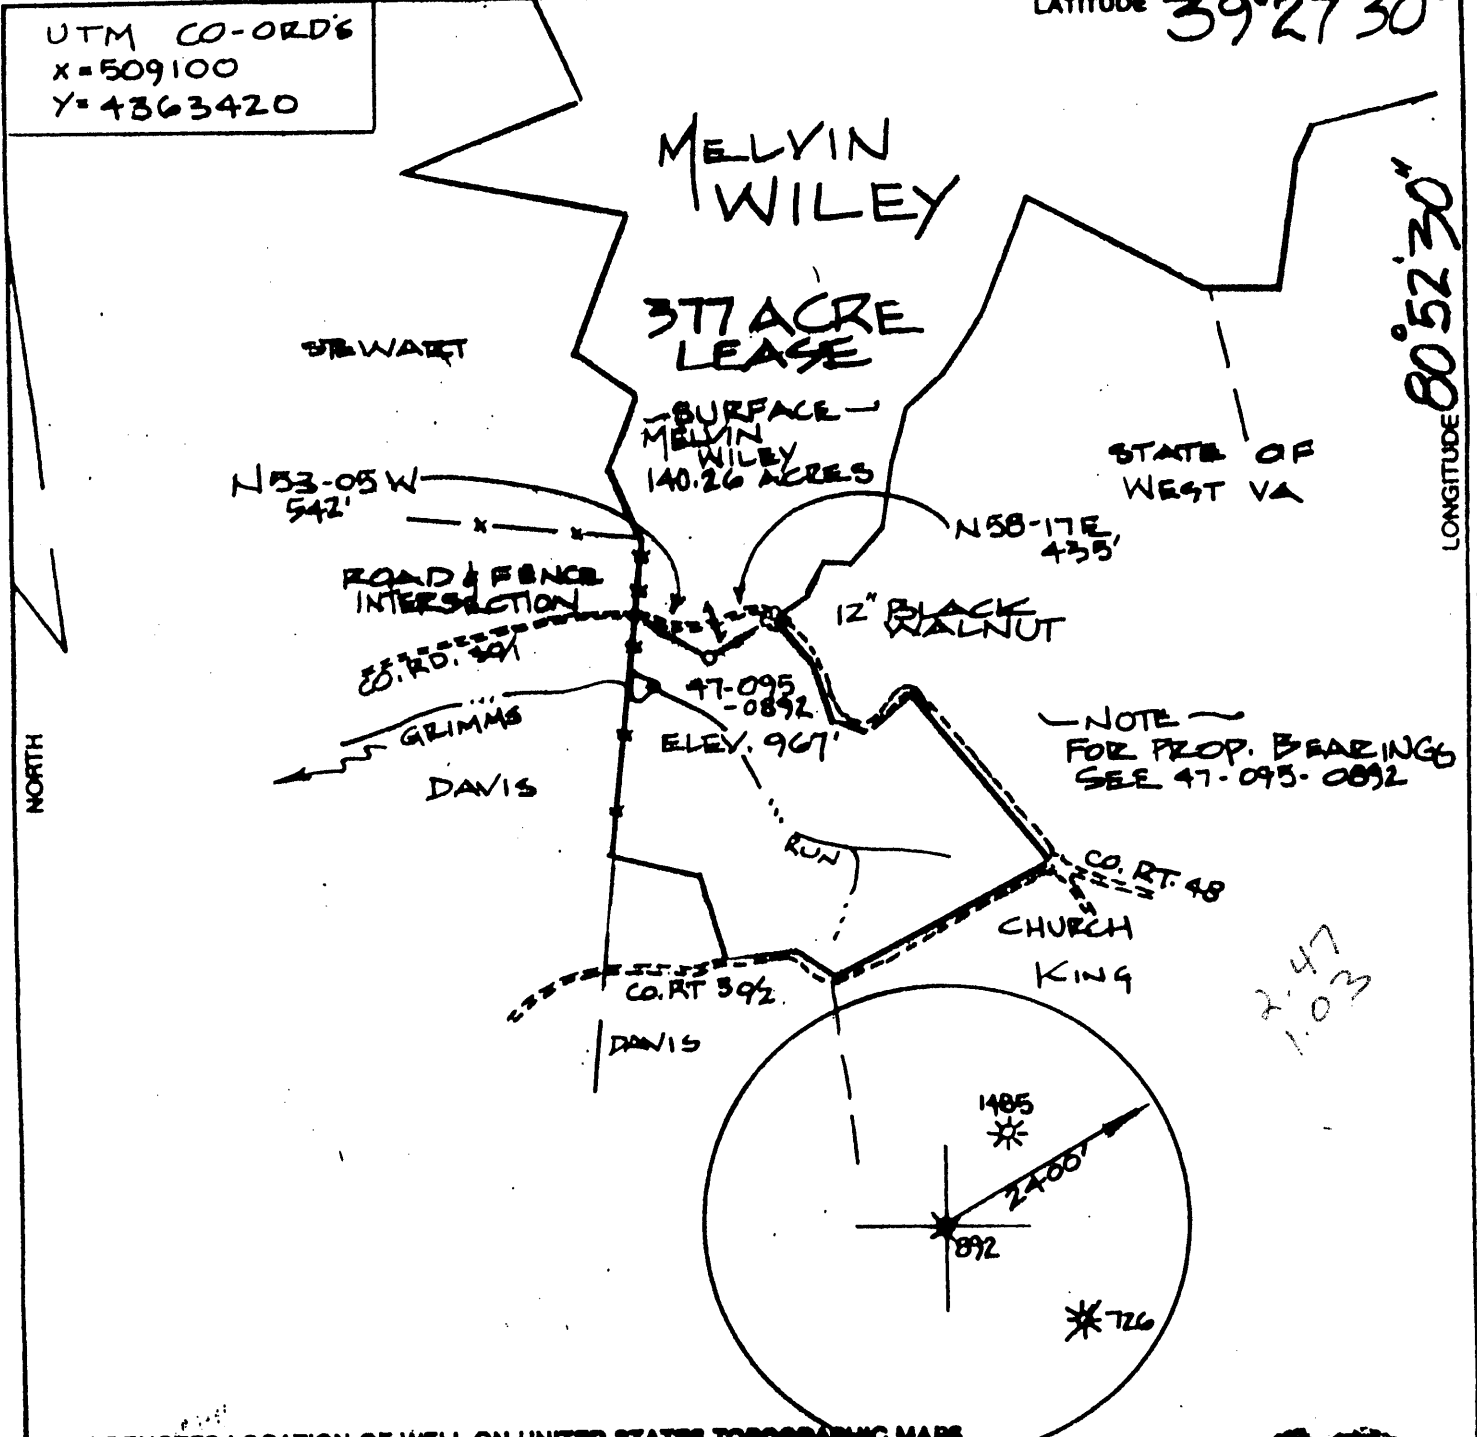 UTM CO-ORD'S
X=509100
Y=4363420
LATITUDE 39°27'30"
MELVIN
WILEY
LONGITUDE 80°52'30"
377 ACRE
LEASE
STEWART
-SURFACE-
MELVIN
WILEY
140.26 ACRES
STATE OF
WEST VA
N53-05W
542'
N58-17E
435'
ROAD & FENCE
INTERSECTION
12" BLACK
WALNUT
CO. RD. 39/1
47-095
-0892
ELEV. 967'
GRIMMS
DAVIS
NORTH
-NOTE-
FOR PROP. BEARINGS
SEE 47-095-0892
RUN
CO. RT. 48
CHURCH
KING
CO. RT 39/2
DAVIS
2.47
1.03
1485
2400'
892
726
LOCATION OF WELL ON UNITED STATES TOPOGRAPHIC MAPS